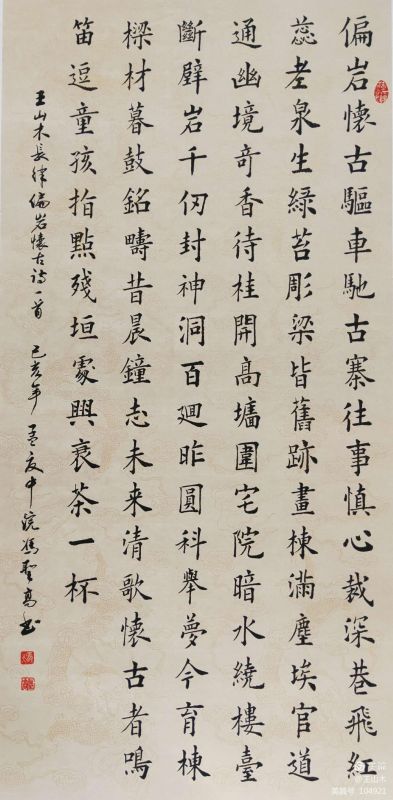 偏岩懷古驅車馳古寨往事慎心裁深巷飛紅
蕊老泉生綠苔彫梁皆舊跡畫棟滿塵埃官道
通幽境奇香待桂開高墻圍宅院暗水繞樓臺
斷壁岩千仞封神洞百廻昨圓科舉夢今育棟
樑材暮鼓銘疇昔晨鐘志未来清歌懷古者鳴
笛逗童孩指點殘垣處興衰茶一杯
王山木長律偏岩懷古詩一首 己亥年 孟夏中浣馮聖高书
王山木
美篇号 104921